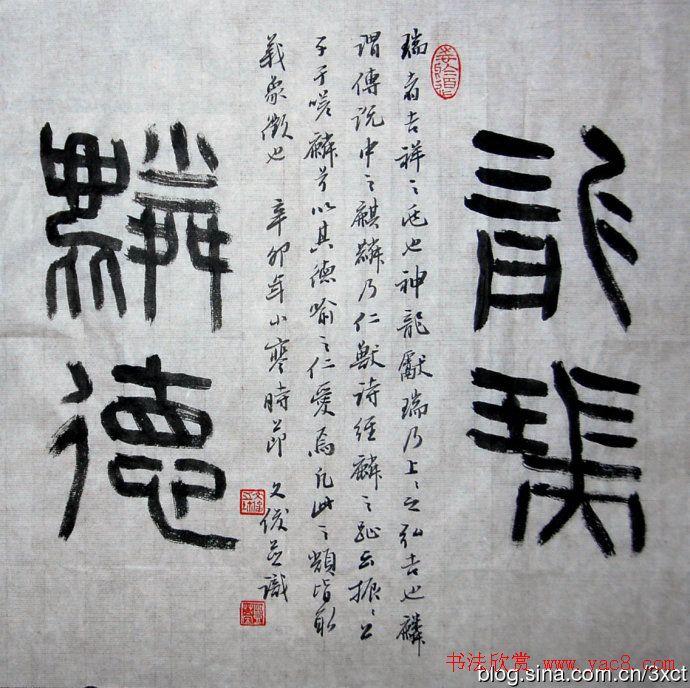 龍瑞
瑞者吉祥之兆也神龍獻瑞乃上上之弘吉也麟
謂傳說中之麒麟乃仁獸詩經麟之趾云振振公
子于嗟麟兮以其德喻之仁愛焉凡此之類皆取
義象徵也 辛卯年小寒時節 文俊並識
麟德
书法欣赏 www.yac8.com
blog.sina.com.cn/3xct